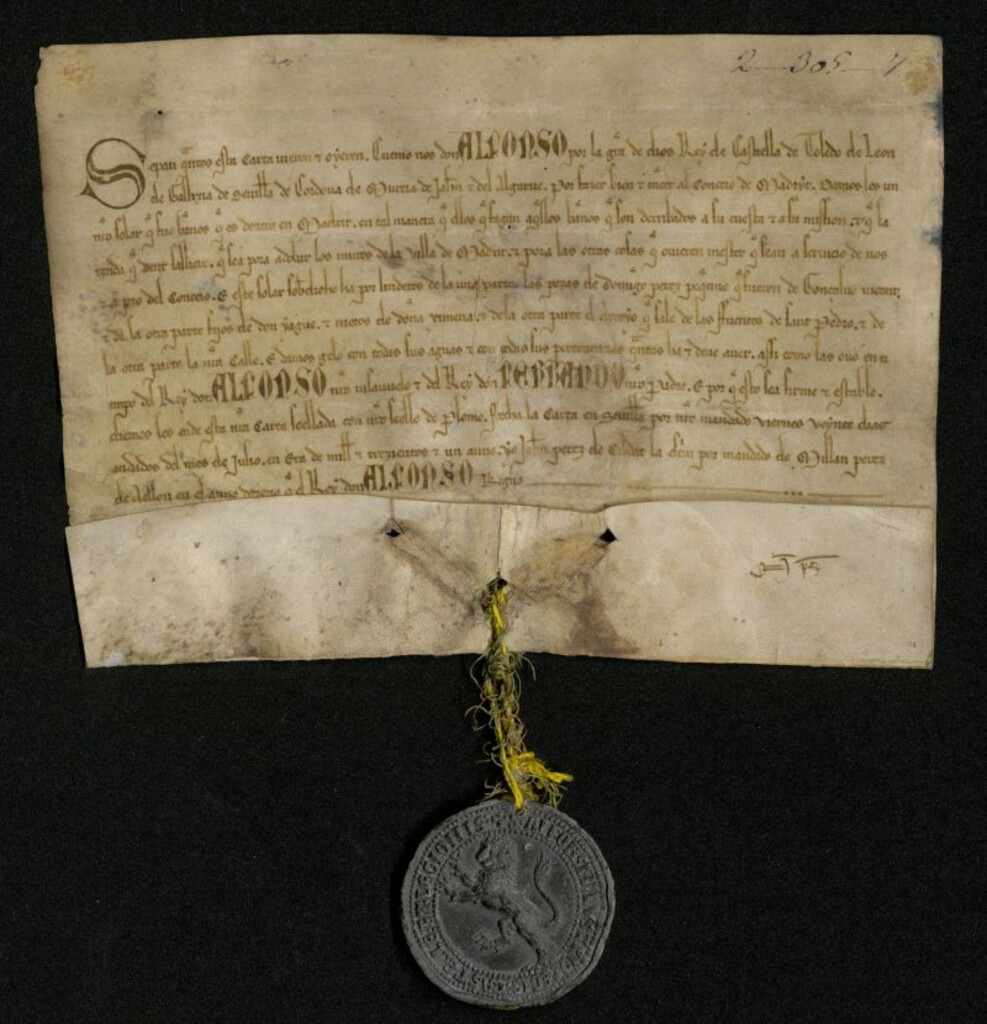 2 — 305 — 7
Sepan q̃ntos esta Carta uieren ⁊ oyeren. Cuemo nos don ALFONSO por la gr̃a de dios Rey de Castiella de Toledo de Leon
de Gallizia de Seuilla de Cordoua de Murcia de Jah̃n ⁊ del Algarue. Por fazer bien ⁊ m̃cet al Conceio de Madrit. Damos les un
nr̃o solar q̃ fue bãnos q̃ es dentro en Madrit. en tal manera q̃ ellos q̃ fagan aq̃llos bãnos q̃ son derribados a su cuesta ⁊ a su mission. ⁊ q̃ la
renda q̃ dent sallier. q̃ sea pora adobar los muros de la Villa de Madrit. ⁊ pora las otras cosas q̃ ouieren mester q̃ sean a seruicio de nos
⁊ a pro del Conceio. E este solar sob̃dicho ha por linderos de la una parte las pozas de domĩgo perez q̃ fueron de Gonçaluo uicent.
⁊ de la otra parte fijos de don yague. ⁊ nietos de dona Xemena. ⁊ de la otra parte el Arroyo q̃ sale de las ffuentes de sant Pedro. ⁊ de
la otra parte la nr̃a Calle. E damos gelo con todas sus aguas ⁊ con todas sus pertenenzas q̃ntas ha ⁊ deue auer. assi como las ouo en ti
empo del Rey don ALFONSO nr̃o uisauuelo ⁊ del Rey don FERRANDO nr̃o Padre. E por q̃ esto sea firme ⁊ estable.
diemos les ende esta nr̃a Carta seellada con nr̃o seello de Plomo. ffecha la Carta en Seuilla por nr̃o mandado viernes veynte dias
andados del mes de Julio. en Era de mill ⁊ trezientos ⁊ un anno. yo Joh̃n perez de Cibdat la escriui por mandado de Millan perez
de Aellon en el anno dozeno q̃ el Rey don ALFONSO Regno